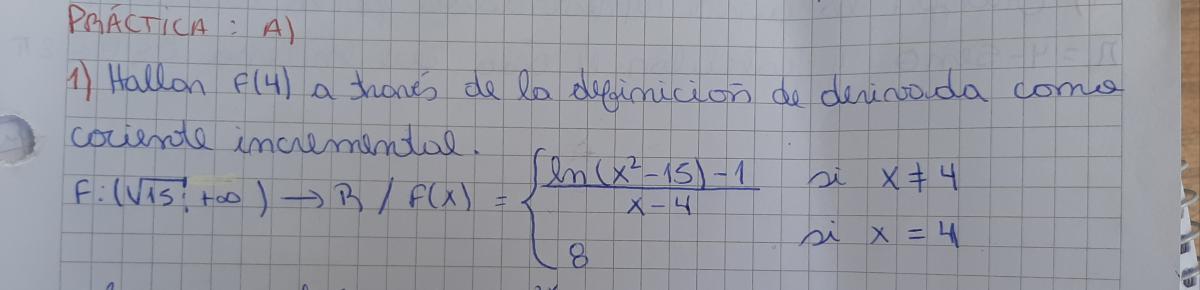 PRÁCTICA: A)
1) Hallar f(4) a través de la definición de derivada como
cociente incremental.
F: (√15; +∞) → R / f(x) = { ln(x²-15)-1 / x-4 si x ≠ 4
8 si x = 4